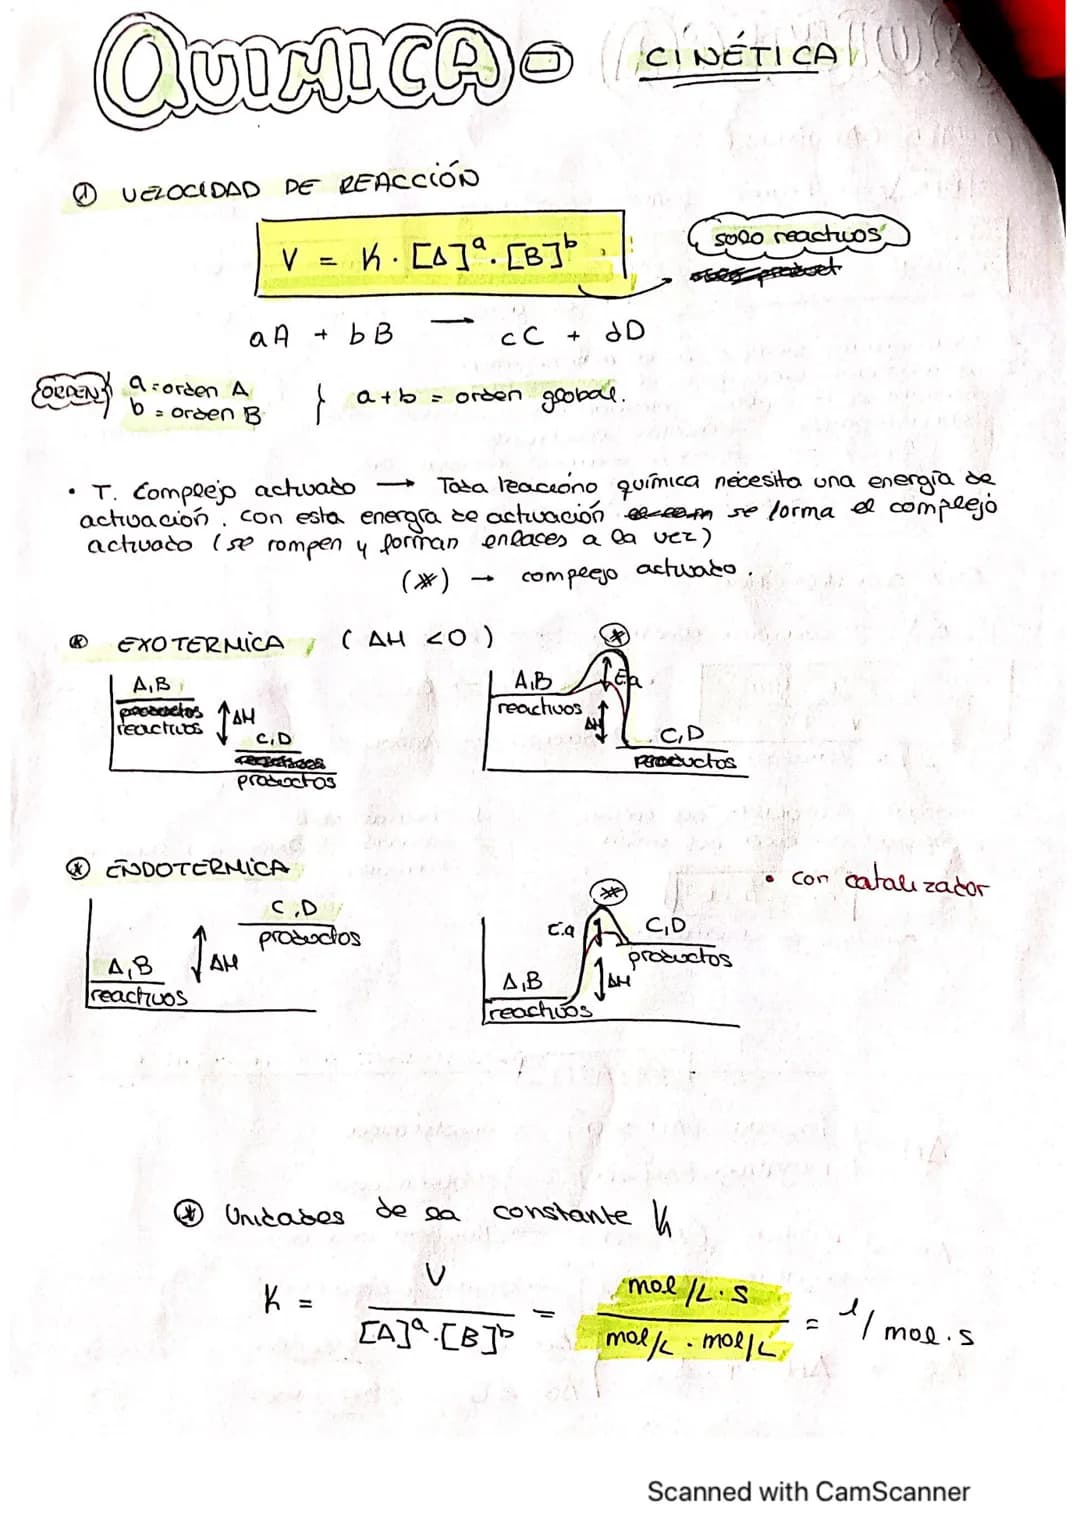 QUIMICA
CINÉTICA
① VELOCIDAD DE REACCIÓN
V = K · [A]ᵃ · [B]ᵇ
solo reactivos
aA + bB → cC + dD
ORDEN
a = orden A
b = orden B
} a+b = orden global.
• T. Complejo activado → Toda reacciono química necesita una energía de
activación. con esta energía de activación se forma el complejo
activado (se rompen y forman enlaces a la vez)
(*) → complejo activado.
* EXOTERMICA (ΔH <0)
A,B
reactivos
ΔH
C,D
productos
*
A,B
reactivos
Ea
ΔH
C,D
productos
* ENDOTERMICA
C,D
productos
A,B
reactivos
ΔH
*
E.a
C,D
productos
A,B
reactivos
ΔH
• con catalizador
* Unidades de la constante K
K = V / [A]ᵃ·[B]ᵇ = mol/L·s / mol/L · mol/L = l/mol·s
Scanned with CamScanner